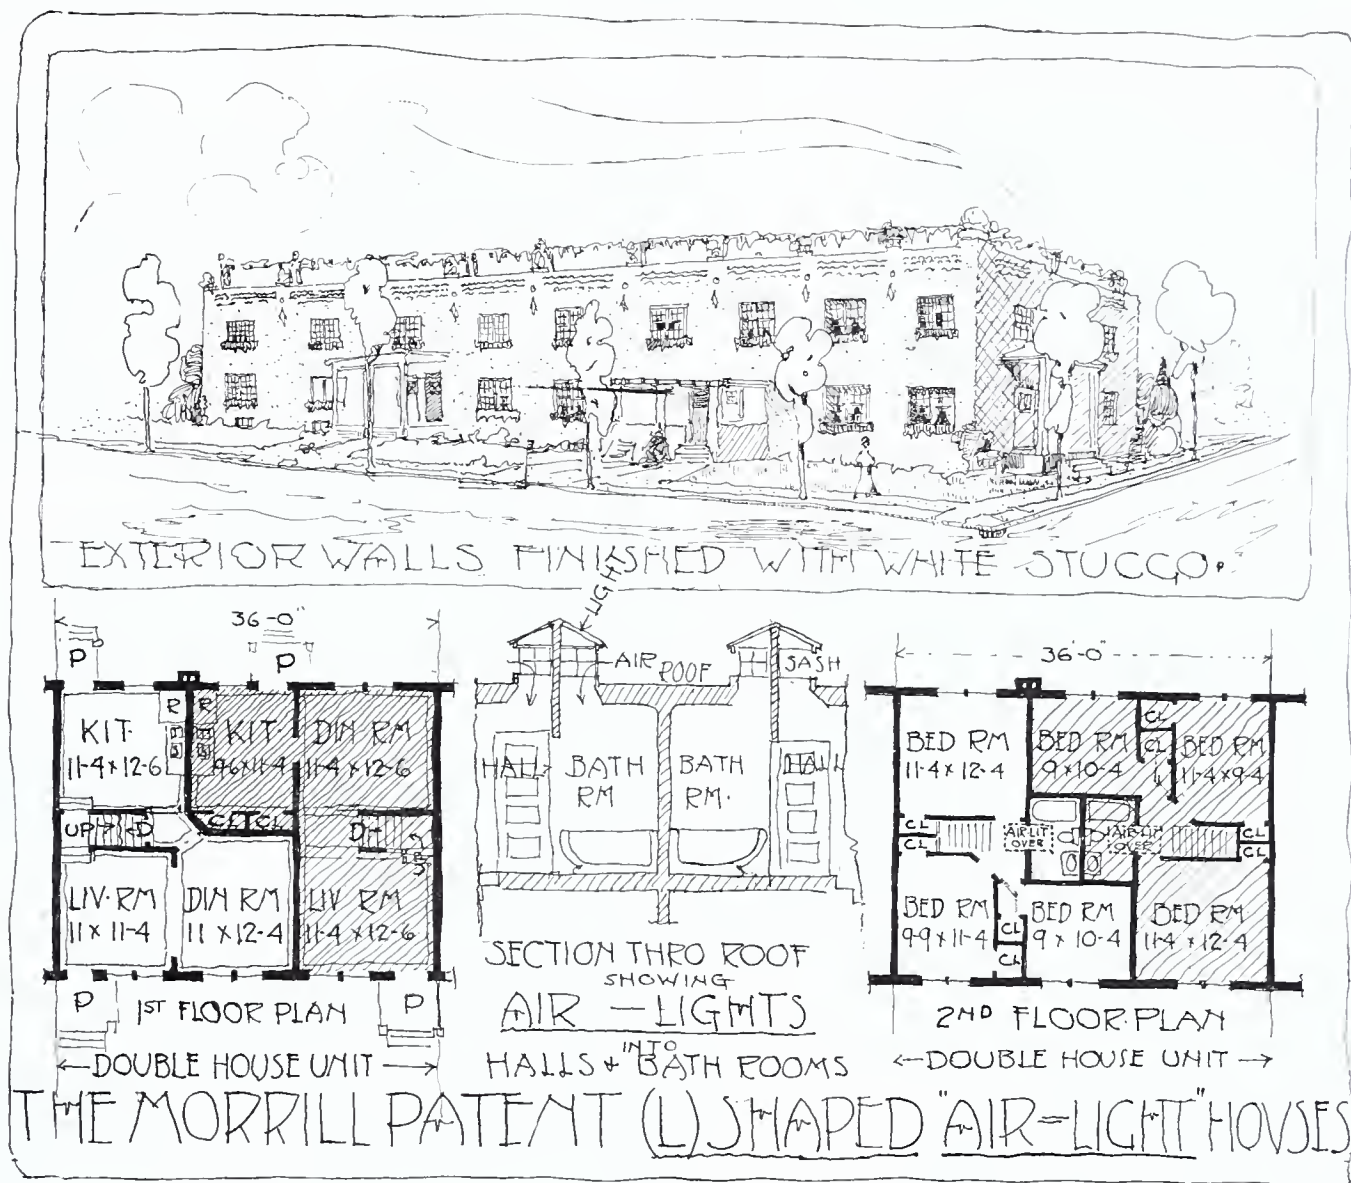 EXTERIOR WALLS FINISHED WITH WHITE STUCCO.
36-0"
P
P
KIT.
11-4 x 12-6
R
R
KIT.
9-6 x 11-4
DIN RM
11-4 x 12-6
UP
D
CL
CL
D
LIV. RM
11 x 11-4
DIN RM
11 x 12-4
LIV RM
11-4 x 12-6
P
P
1ST FLOOR PLAN
← DOUBLE HOUSE UNIT →
LIGHT
AIR
ROOF
SASH
HALL
BATH
RM
BATH
RM.
HALL
SECTION THRO ROOF
SHOWING
AIR — LIGHTS
INTO
HALLS & BATH ROOMS
36-0"
BED RM
11-4 x 12-4
BED RM
9 x 10-4
CL
CL
BED RM
11-4 x 9-4
CL
CL
AIR-LIT
OVER
OVER
CL
CL
BED RM
9-9 x 11-4
CL
CL
BED RM
9 x 10-4
BED RM
11-4 x 12-4
2ND FLOOR PLAN
← DOUBLE HOUSE UNIT →
THE MORRILL PATENT (L) SHAPED "AIR=LIGHT" HOVSES